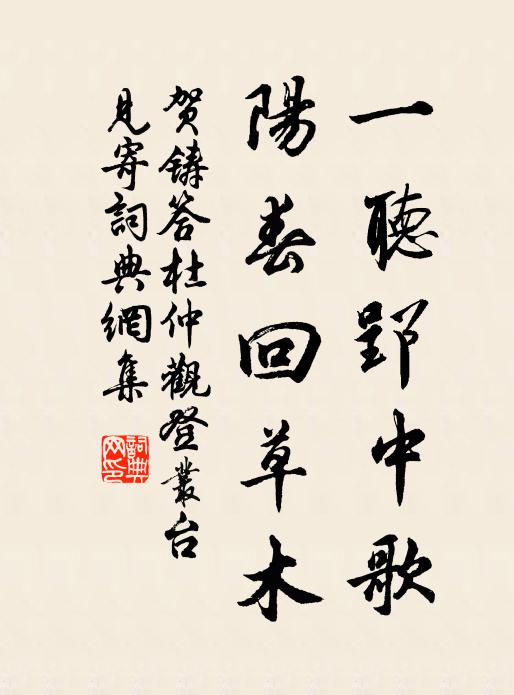 一聽郢中歌
陽春回草木
賀鑄答杜仲觀登叢台
見寄詞典網集
詞典網印